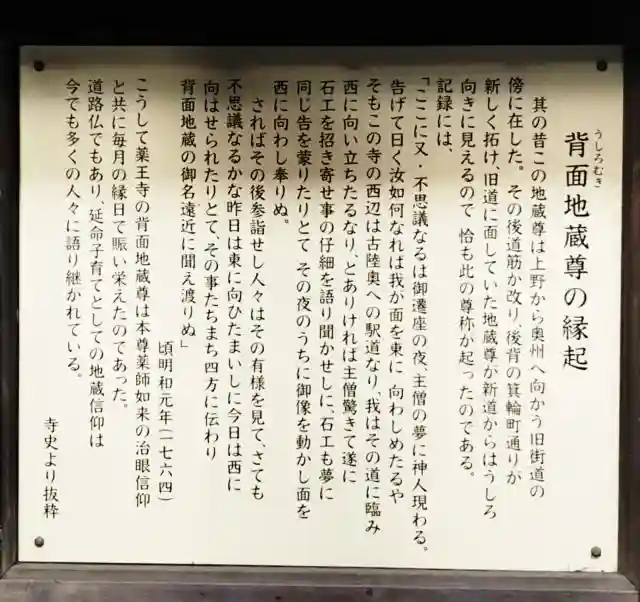 背面地蔵尊の縁起
うしろむき
其の昔この地蔵尊は上野から奥州へ向かう旧街道の
傍に在した。その後道筋か改り、後背の箕輪町通りが
新しく拓け、旧道に面していた地蔵尊が新道からはうしろ
向きに見えるので 恰も此の尊称が起ったのである。
記録には、
「ここに又・不思議なるは御遷座の夜、主僧の夢に神人現わる。
告げて曰く汝如何なれば我か面を東に 向わしめたるや
そもこの寺の西辺は古陸奥への駅道なり、我はその道に臨み
西に向い立ちたるなり、とありければ主僧驚きて遂に
石工を招き寄せ事の仔細を語り聞かせしに、石工も夢に
同じ告を蒙りたりとて その夜のうちに御像を動かし面を
西に向わし奉りぬ。
さればその後参詣せし人々はその有様を見て、さても
不思議なるかな昨日は東に向ひたまいしに今日は西に
向はせられたりとて、その事たちまち四方に伝わり
背面地蔵の御名遠近に聞え渡りぬ」
頃明和元年(一七六四)
こうして薬王寺の背面地蔵尊は本尊薬師如来の治眼信仰
と共に毎月の縁日て賑い栄えたのであった。
道路仏でもあり、延命子育てとしての地蔵信仰は
今でも多くの人々に語り継かれている。
寺史より抜粋